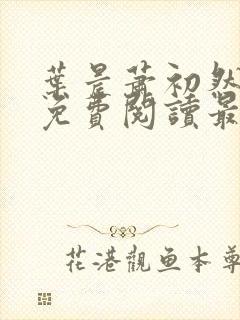 葉是萧初然
免費閱讀最
花港觀鱼本尊